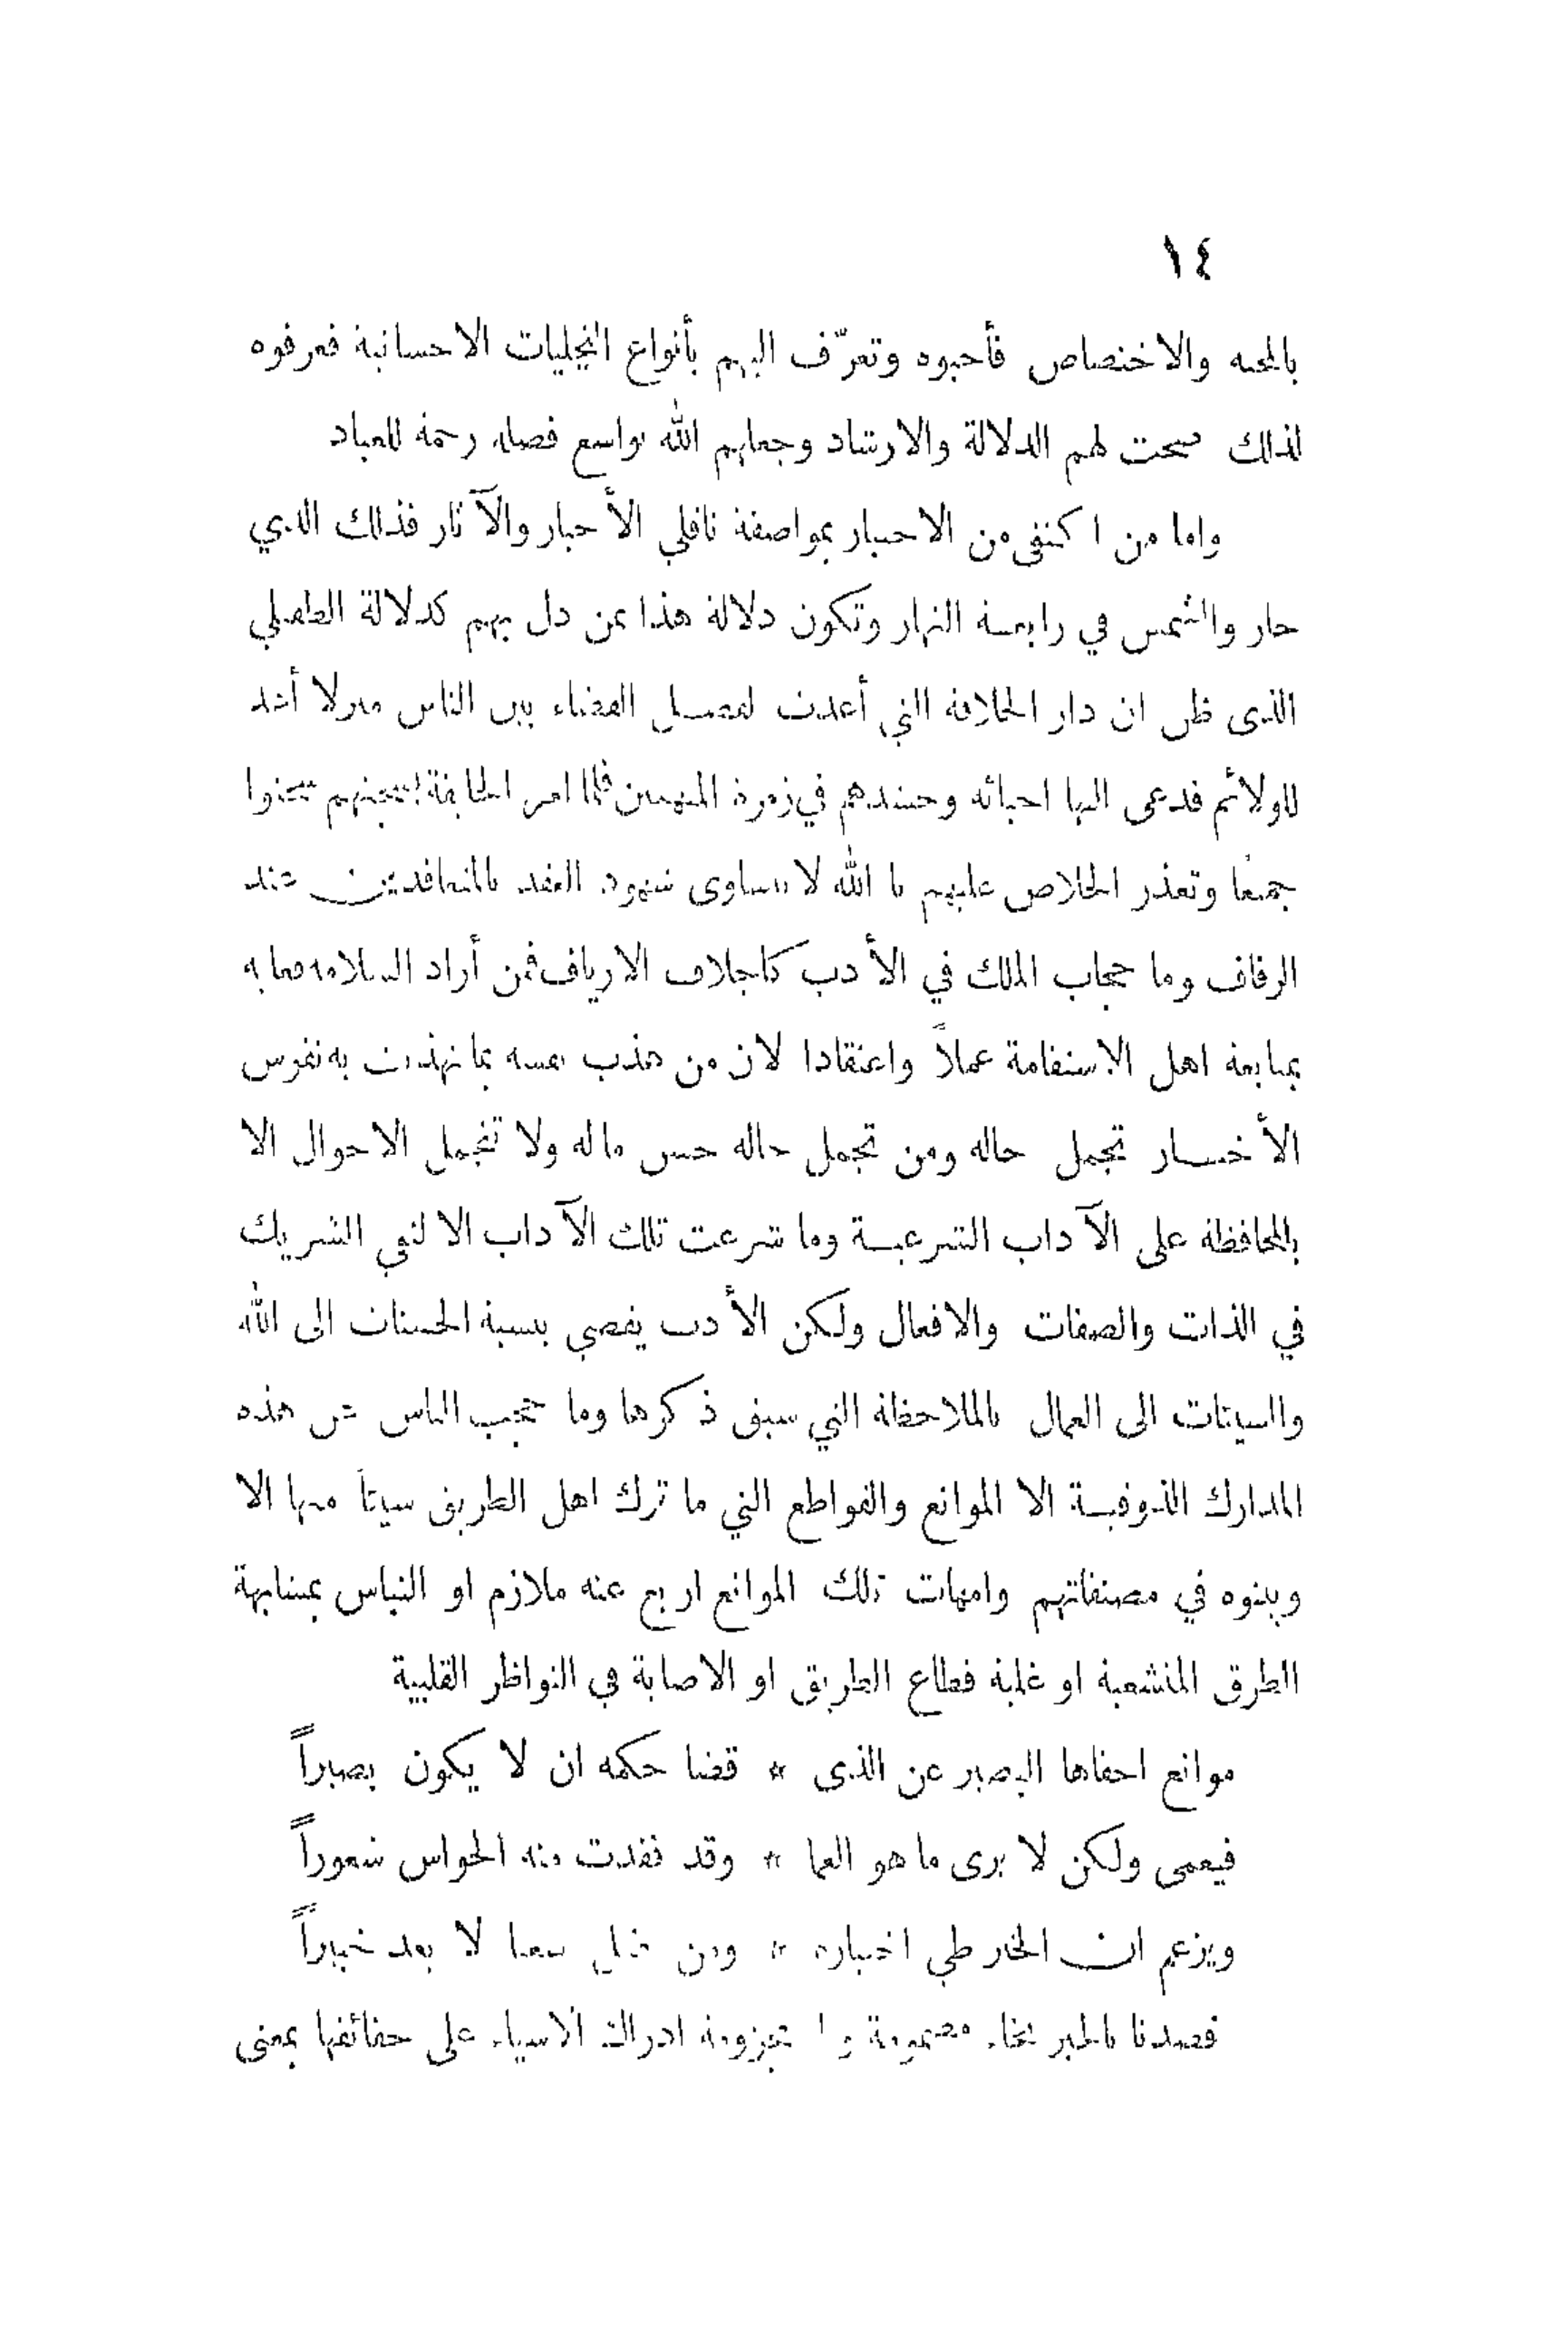 ١٤
بالمحبه والاختصاص فأحبوه وتعرّف اليهم بأنواع التجليات الاحسانية فعرفوه
لذلك صحت لهم الدلالة والارشاد وجعلهم الله بواسع فضله رحمة للعباد
واما من اكتفى من الاخبار بمواصفة ناقلي الأخبار والآثار فذلك الذي
حار والشمس في رابعة النهار وتكون دلالة هذا بمن دل بهم كدلالة الطفيلي
الذى ظن ان دار الخلافة التي أعدت لفصل القضاء بين الناس منزلا أعد
للولائم فدعى اليها احبائه وحشدهم في زمرة المتهمين فلما امر الخليفة بسجنهم سجنوا
جميعا وتعذر الخلاص عليهم تا الله لا يساوى شهود العقد بالمتعاقدين عند
الزفاف وما حجاب الملك في الأدب كاجلاف الارياف فمن أراد السلامه فعليه
بمتابعة اهل الاستقامة عملاً واعتقادا لان من هذب نفسه بما تهذبت به نفوس
الأخيار تجمل حاله ومن تجمل حاله حسن ماله ولا تتجمل الاحوال الا
بالمحافظة على الآداب الشرعية وما شرعت تلك الآداب الا لنفي الشريك
في الذات والصفات والافعال ولكن الأدب يقضي بنسبة الحسنات الى الله
والسيئات الى العمال بالملاحظة التي سبق ذكرها وما حجب الناس عن هذه
المدارك الذوقية الا الموانع والقواطع التي ما ترك اهل الطريق شيئاً منها الا
وبينوه في مصنفاتهم وامهات تلك الموانع اربع عنه ملازم او التباس بمشابهة
الطرق المتشعبة او غلبة قطاع الطريق او الاصابة في النواظر القلبية
موانع اخفاها البصير عن الذى * قضا حكمه ان لا يكون بصيراً
فيعمى ولكن لا يرى ما هو العما * وقد فقدت منه الحواس شعوراً
ويزعم ان الخبر طي اخباره * ومن لا يعد خبيراً
قصدنا بالخبر بخاء مضمومة مجزومة ادراك الاشياء على حقائقها بمعنى